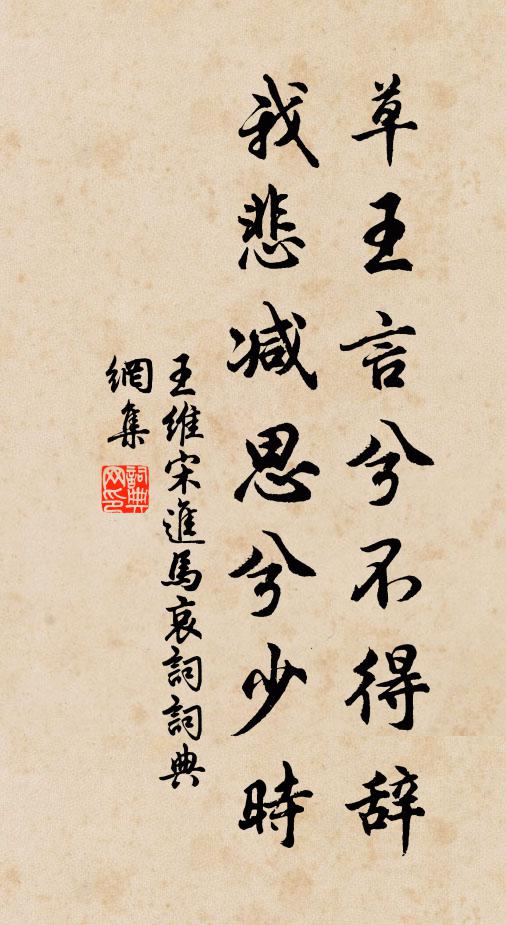 草王言兮不得辞
我悲减思兮少時
王維宋進馬哀詞詞典
網集
詞典
网印